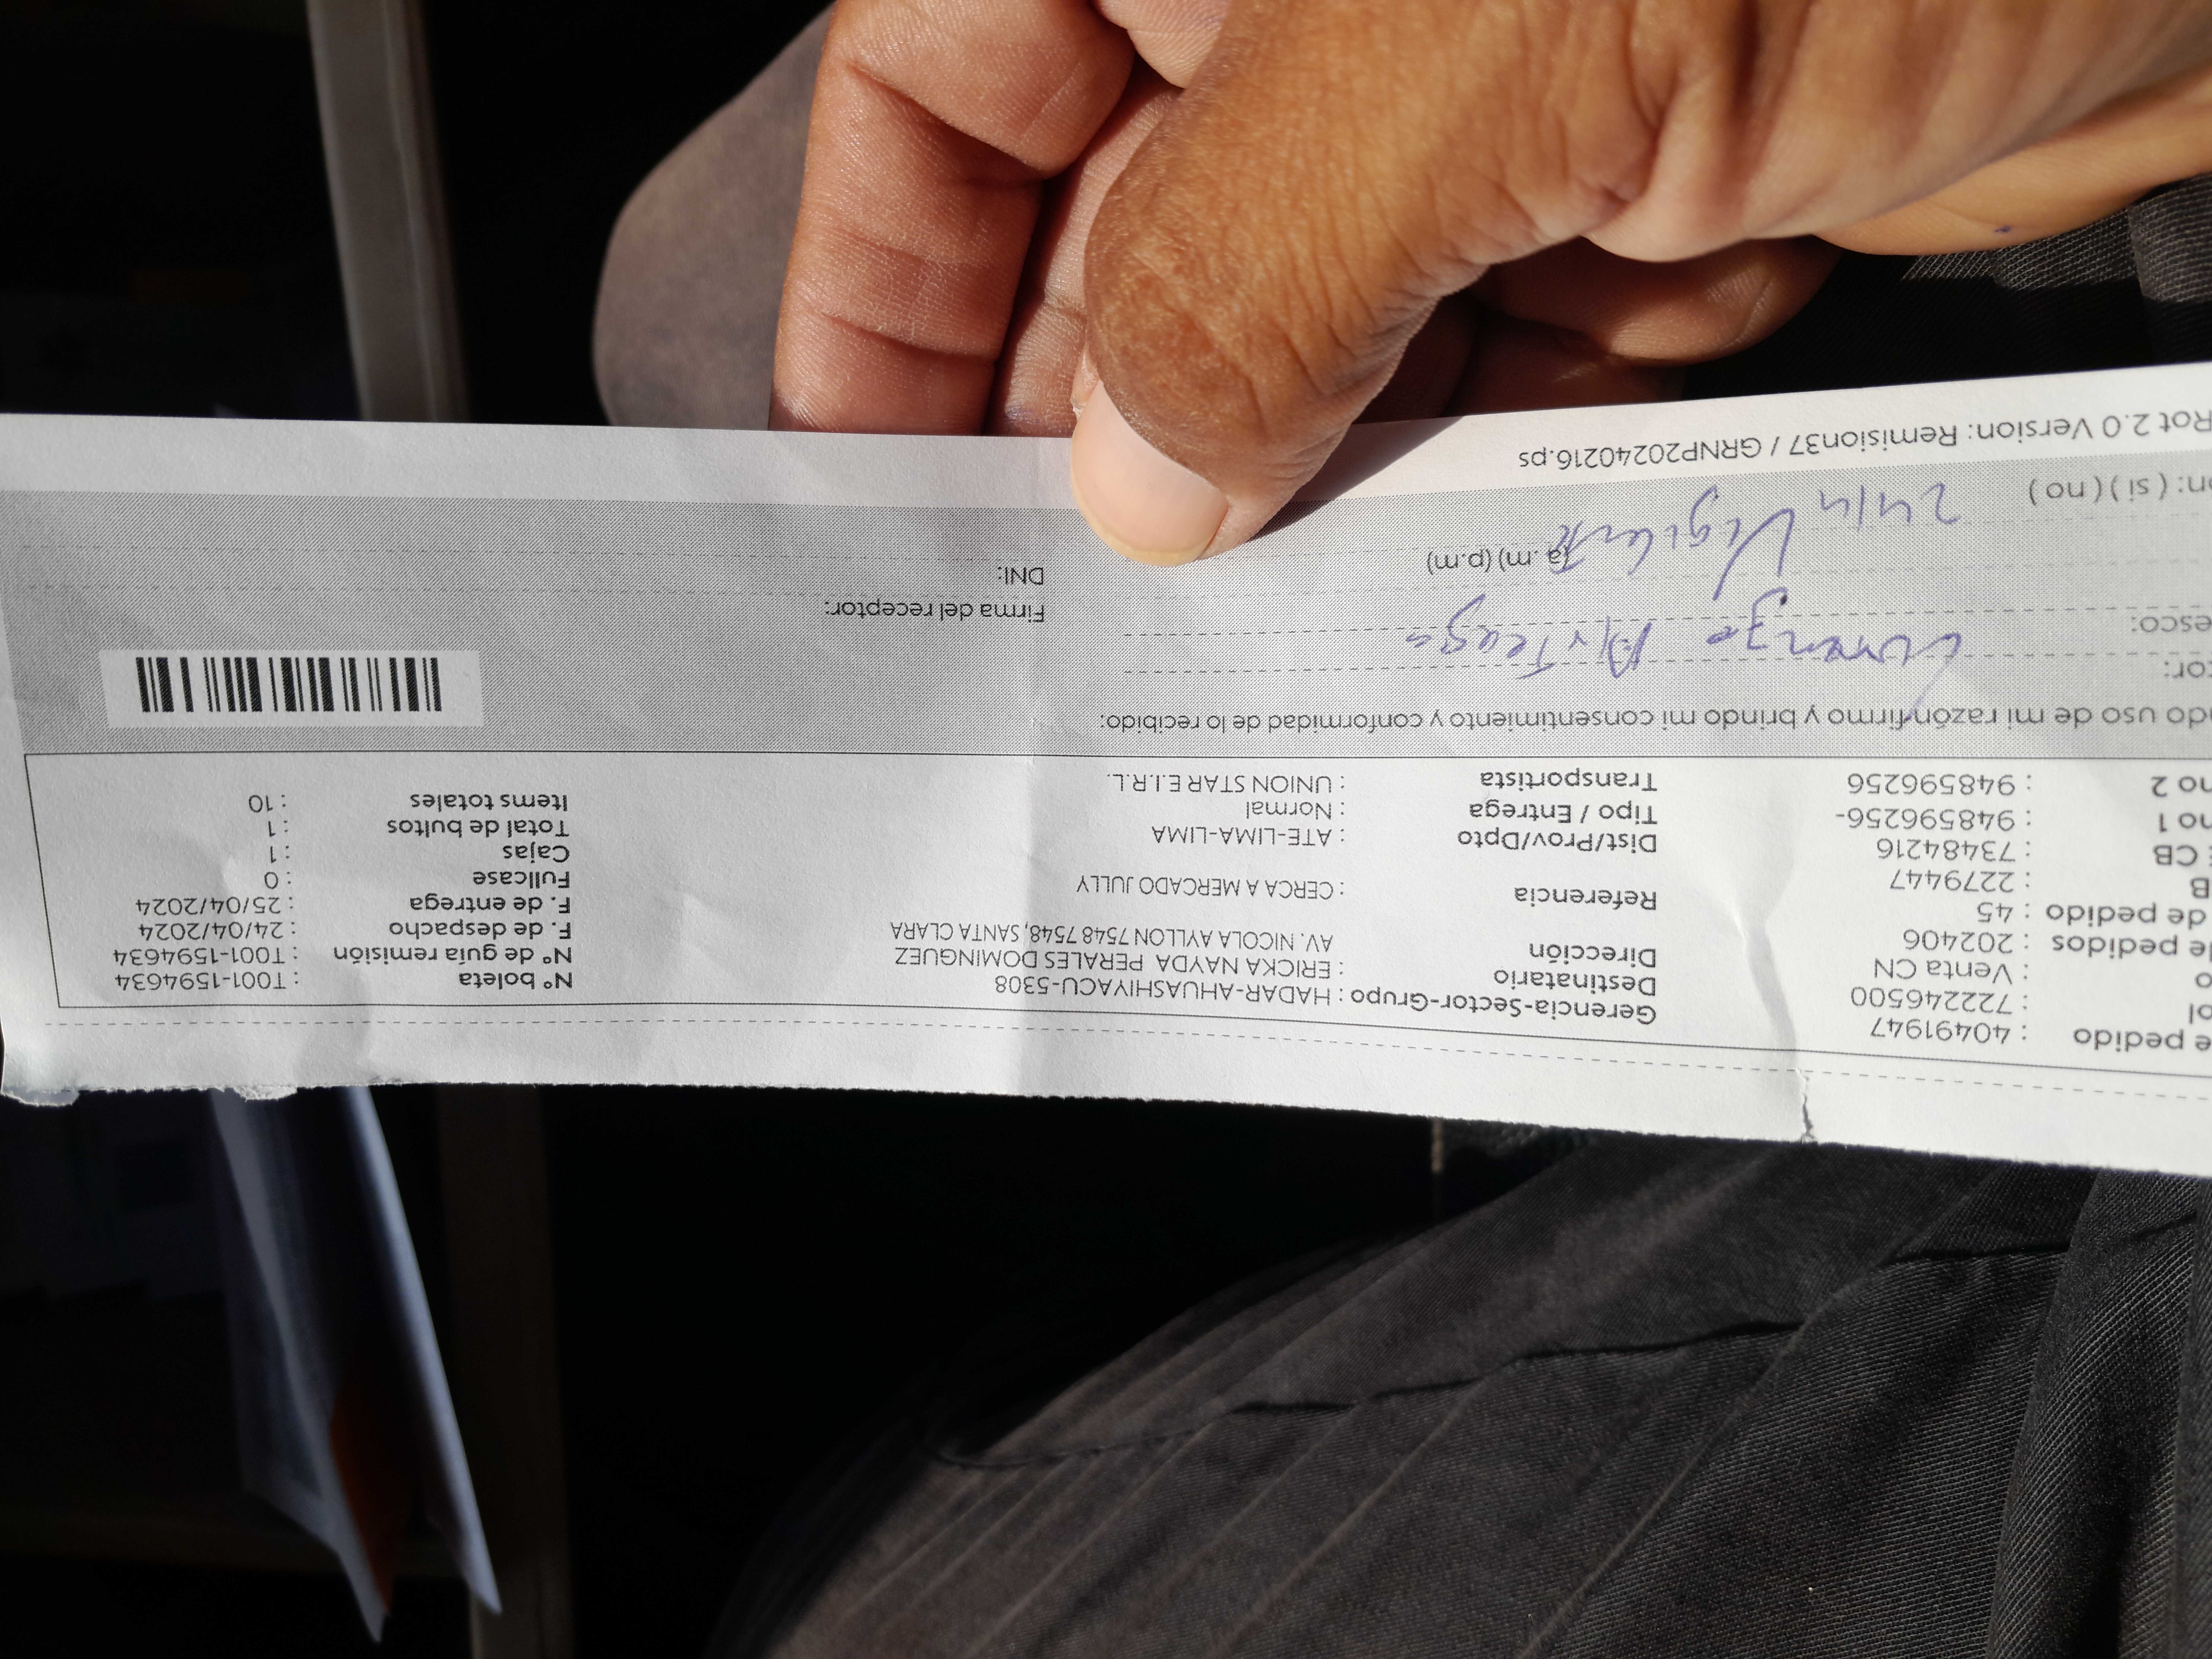 e pedido : 40491947
ol : 722246500
o : Venta CN
de pedidos : 202406
de pedido : 45
B : 2279447
CB : 73484216
no 1 : 948596256-
no 2 : 948596256
Gerencia-Sector-Grupo : HADAR-AHUASHIYACU-5308
Destinatario : ERICKA NAYDA PERALES DOMINGUEZ
Dirección AV. NICOLA AYLLON 7548 7548, SANTA CLARA
Referencia : CERCA A MERCADO JULLY
Dist/Prov/Dpto : ATE-LIMA-LIMA
Tipo / Entrega : Normal
Transportista : UNION STAR E.I.R.L.
N° boleta : T001-1594634
N° de guía remisión : T001-1594634
F. de despacho : 24/04/2024
F. de entrega : 25/04/2024
Fullcase : 0
Cajas : 1
Total de bultos : 1
Items totales : 10
ndo uso de mi razón firmo y brindo mi consentimiento y conformidad de lo recibido:
tor: Lorenzo Arteaga
esco:
Firma del receptor:
DNI:
(a.m) (p.m)
on: ( si ) ( no ) 24/4 Vigilante
Rot 2.0 Version: Remision37 / GRNP20240216.ps